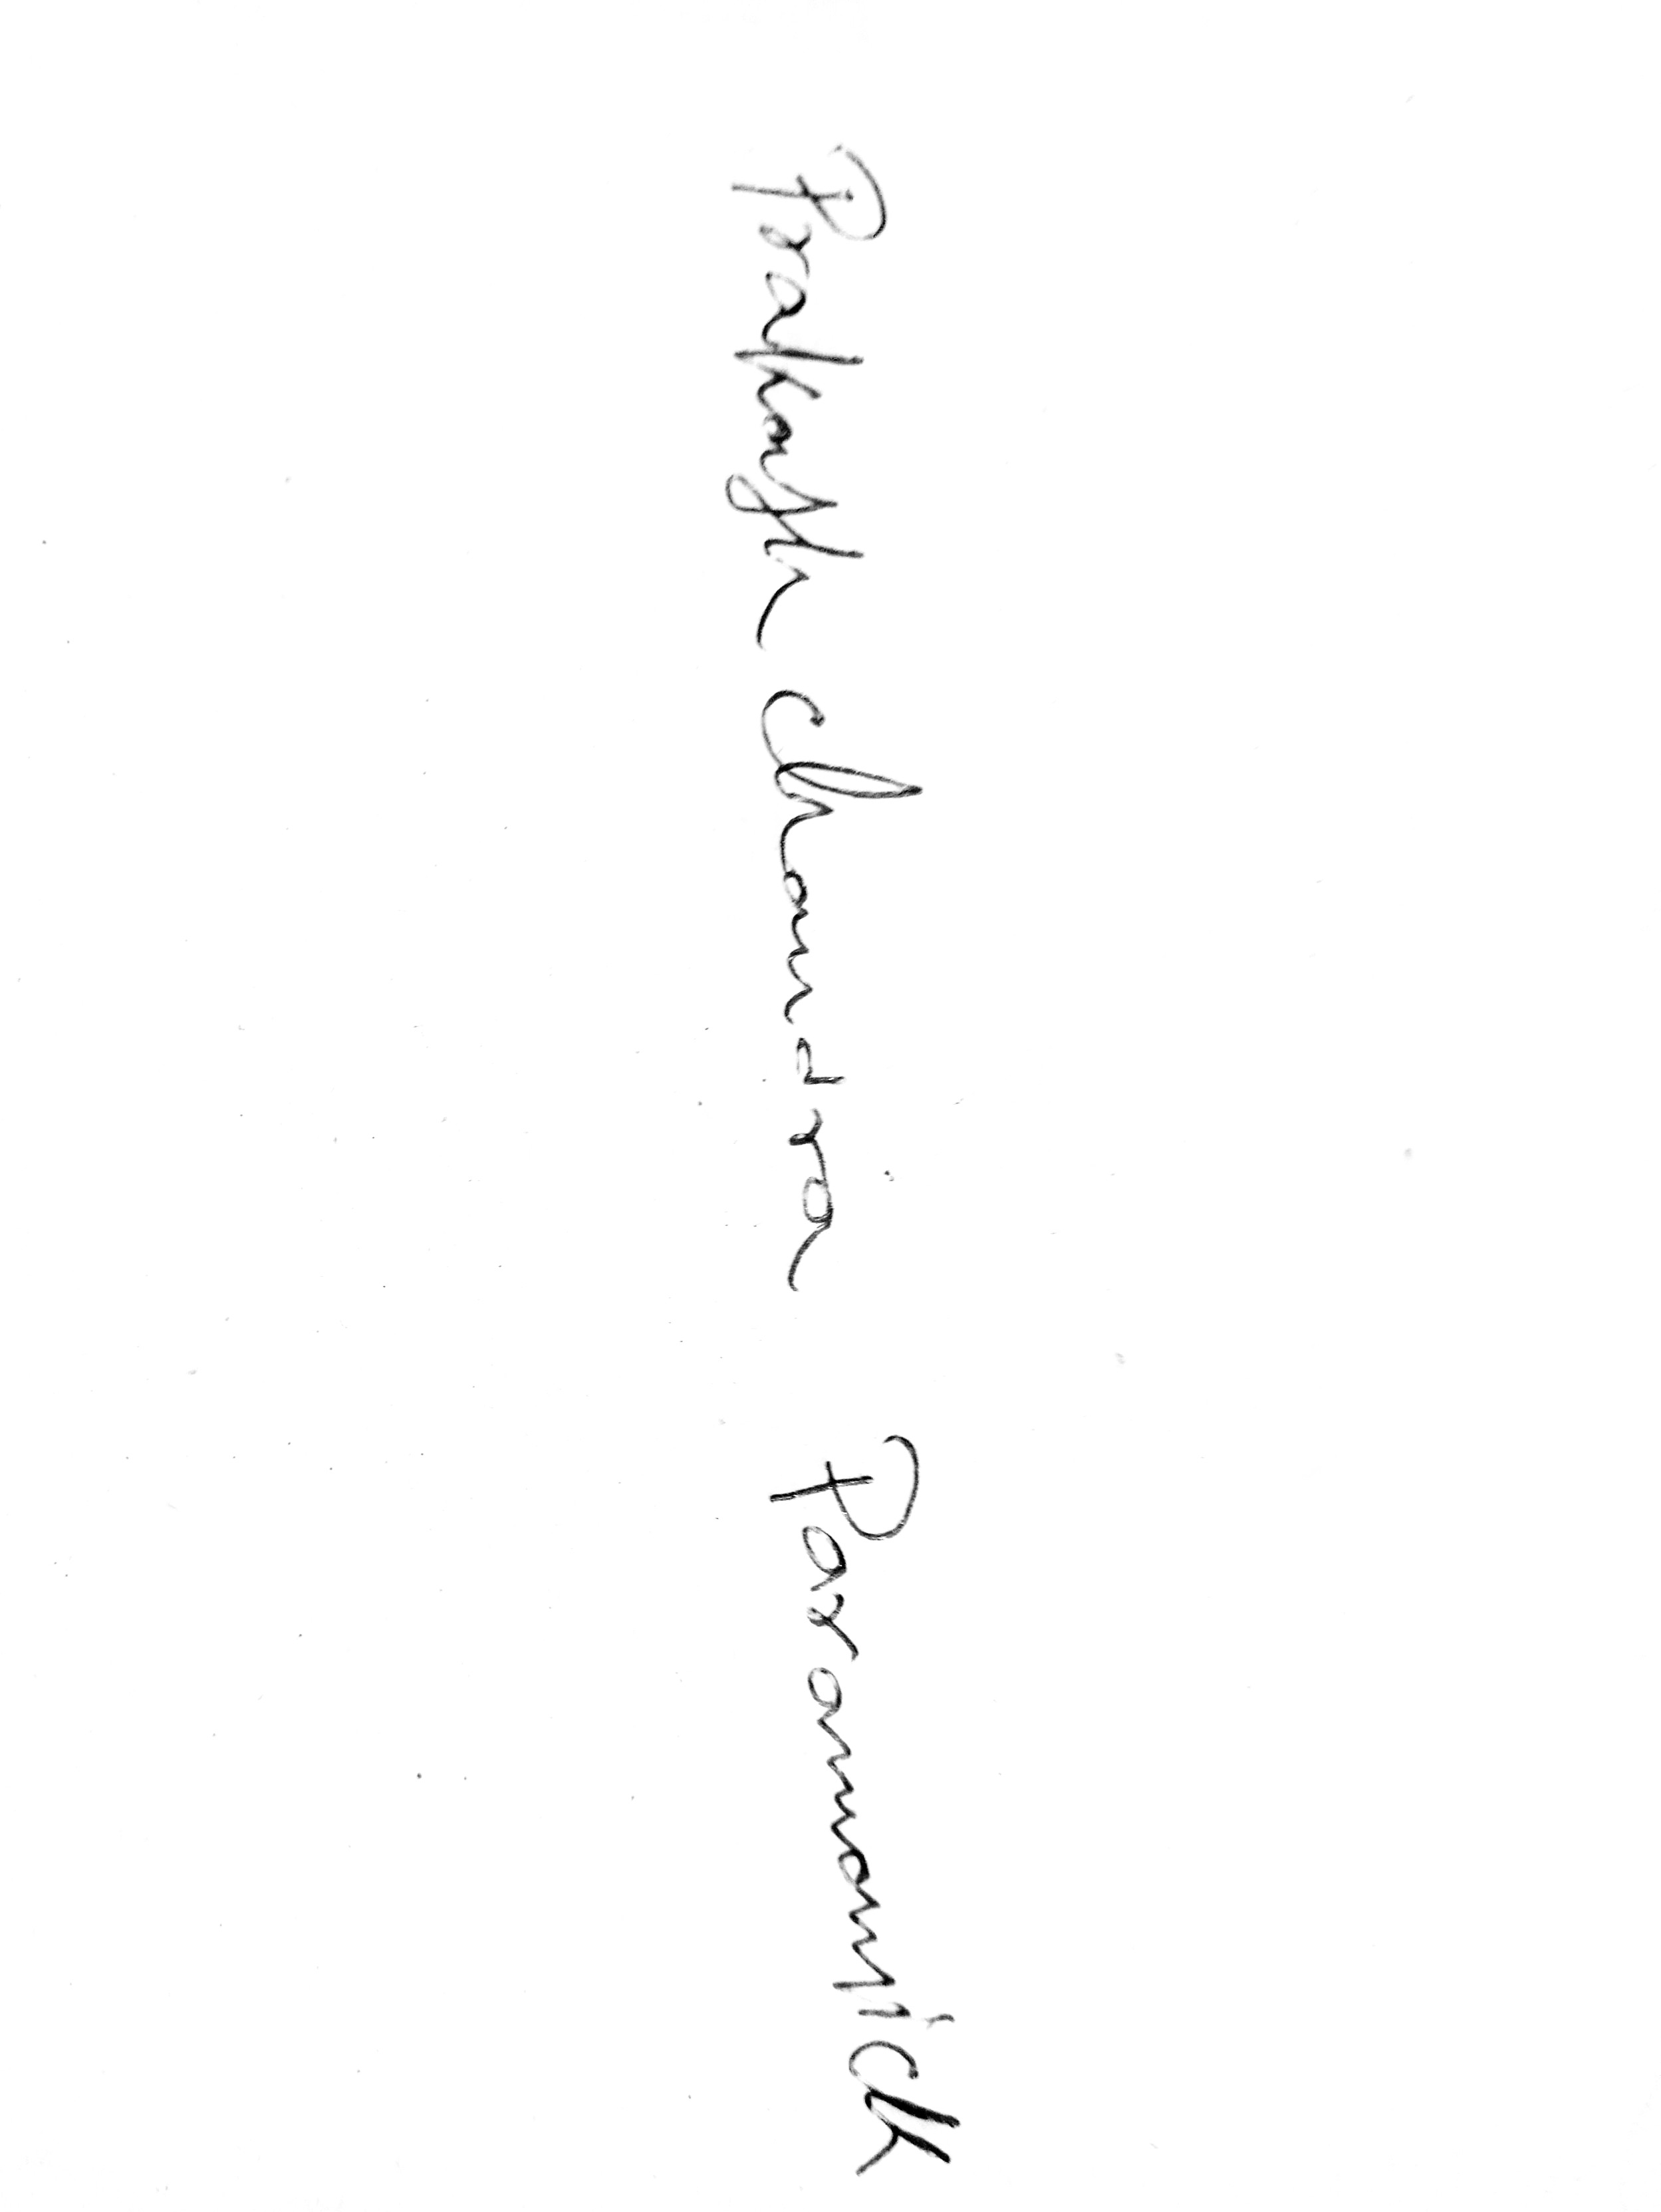 Prakash chandra Paramanick